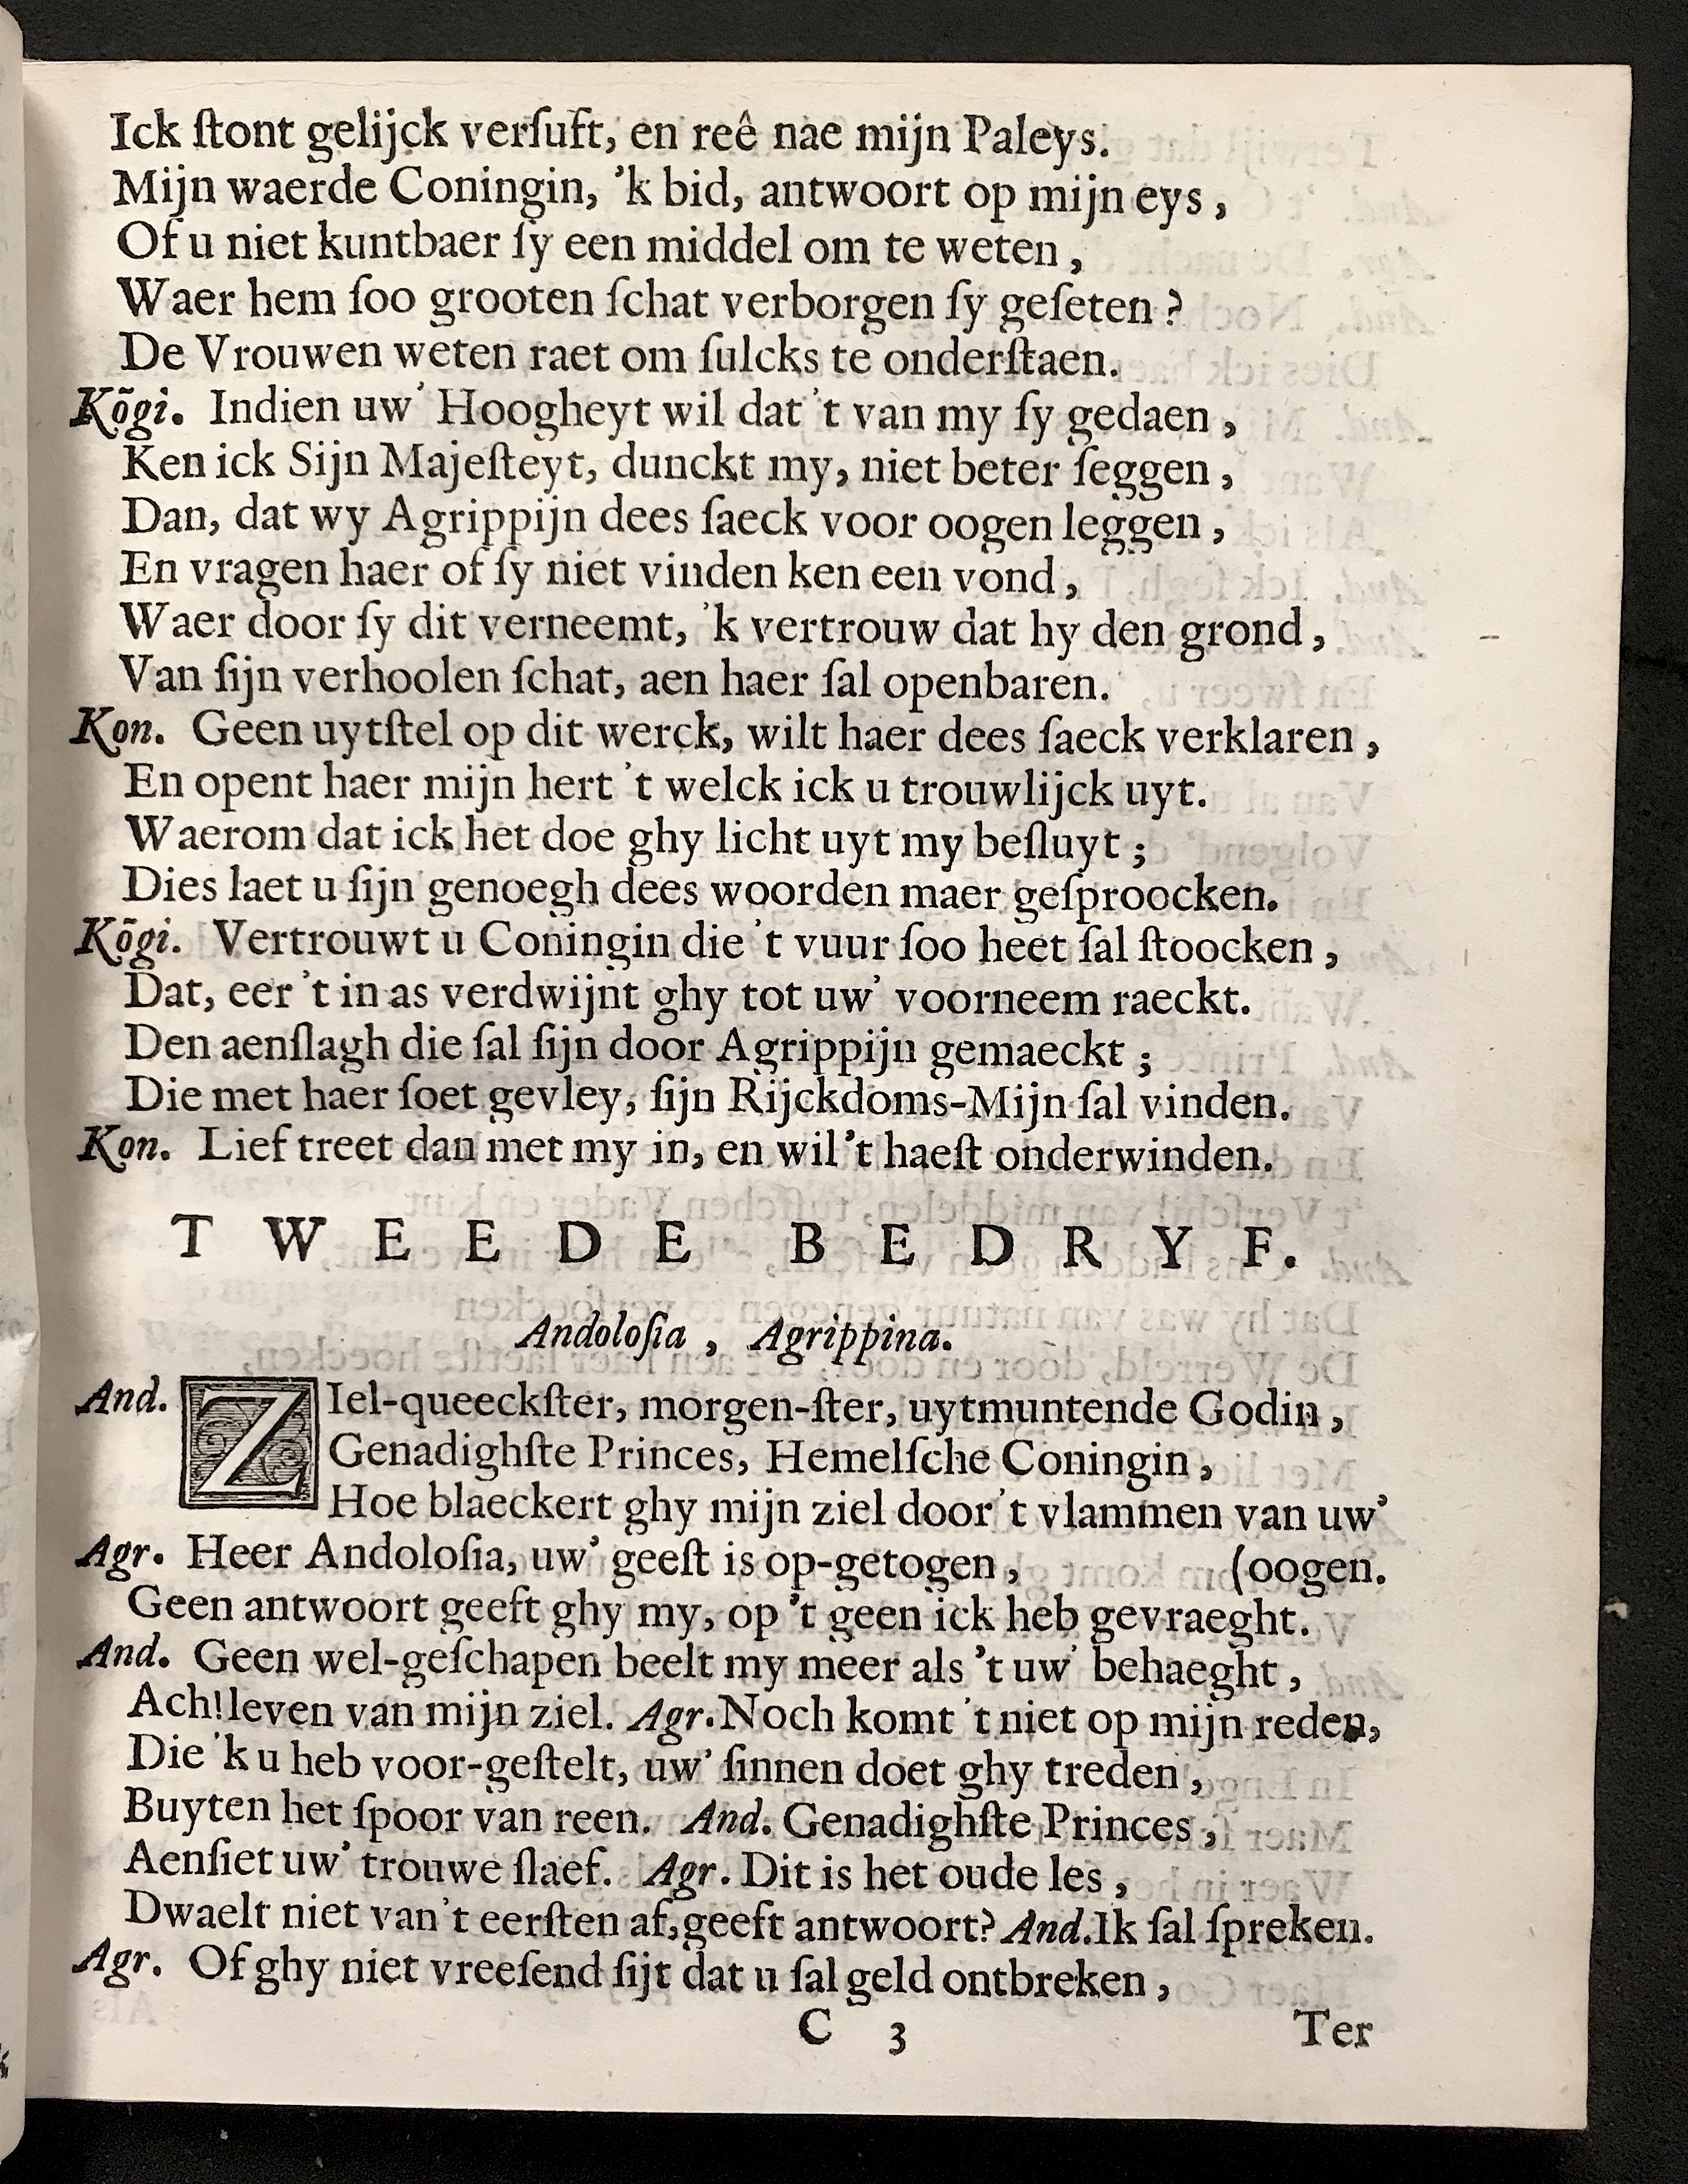 Ick ſtont gelijck verſuft, en reê nae mijn Paleys.
Mijn waerde Coningin, 'k bid, antwoort op mijn eys,
Of u niet kuntbaer ſy een middel om te weten,
Waer hem ſoo grooten ſchat verborgen ſy geſeten?
De Vrouwen weten raet om ſulcks te onderſtaen.
Kõgi. Indien uw' Hoogheyt wil dat 't van my ſy gedaen,
Ken ick Sijn Majeſteyt, dunckt my, niet beter ſeggen,
Dan, dat wy Agrippijn dees ſaeck voor oogen leggen,
En vragen haer of ſy niet vinden ken een vond,
Waer door ſy dit verneemt, 'k vertrouw dat hy den grond,
Van ſijn verhoolen ſchat, aen haer ſal openbaren.
Kon. Geen uytſtel op dit werck, wilt haer dees ſaeck verklaren,
En opent haer mijn hert 't welck ick u trouwlijck uyt.
Waerom dat ick het doe ghy licht uyt my beſluyt;
Dies laet u ſijn genoegh dees woorden maer geſproocken.
Kõgi. Vertrouwt u Coningin die 't vuur ſoo heet ſal ſtoocken,
Dat, eer 't in as verdwijnt ghy tot uw' voorneem raeckt.
Den aenſlagh die ſal ſijn door Agrippijn gemaeckt;
Die met haer ſoet gevley, ſijn Rijckdoms-Mijn ſal vinden.
Kon. Lief treet dan met my in, en wil 't haeſt onderwinden.
TWEEDE BEDRYF.
Andoloſia, Agrippina.
And. ZIel-queeckſter, morgen-ſter, uytmuntende Godin,
Genadighſte Princes, Hemelſche Coningin,
Hoe blaeckert ghy mijn ziel door 't vlammen van uw'
Agr. Heer Andoloſia, uw' geeſt is op-getogen, (oogen.
Geen antwoort geeft ghy my, op 't geen ick heb gevraeght.
And. Geen wel-geſchapen beelt my meer als 't uw' behaeght,
Ach! leven van mijn ziel. Agr. Noch komt 't niet op mijn reden,
Die 'k u heb voor-geſtelt, uw' ſinnen doet ghy treden,
Buyten het ſpoor van reen. And. Genadighſte Princes,
Aenſiet uw' trouwe ſlaef. Agr. Dit is het oude les,
Dwaelt niet van 't eerſten af, geeft antwoort? And. Ik ſal ſpreken.
Agr. Of ghy niet vreeſend ſijt dat u ſal geld ontbreken,
C 3 Ter